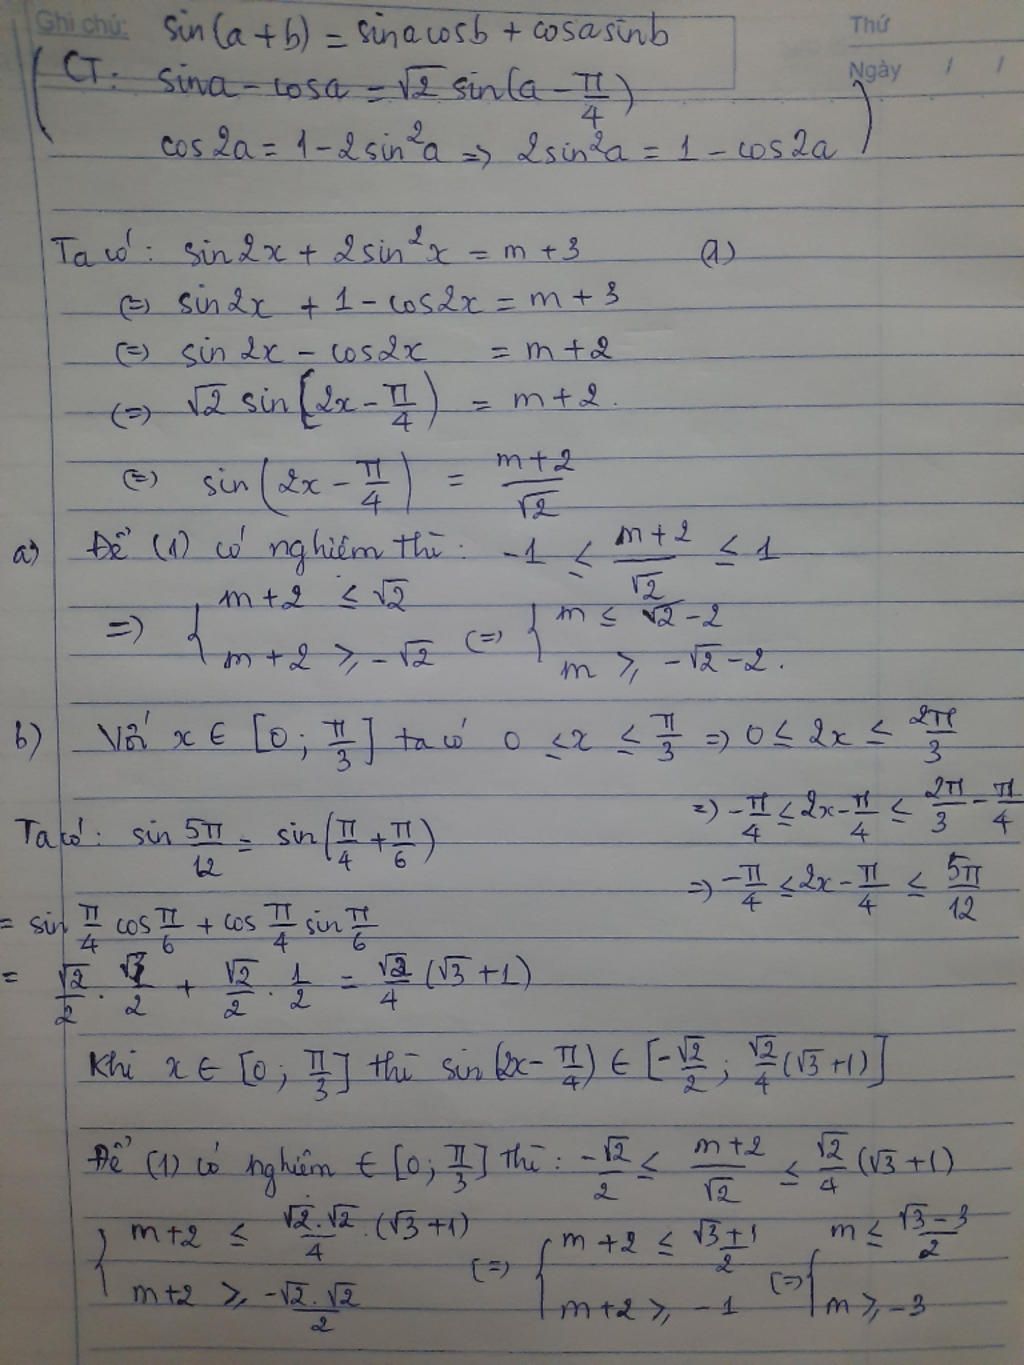 Ghi chú:
Thứ
Ngày / /
sin(a + b) = sinacosb + cosasinb
(CT: sina - cosa = √2 sin(a - π/4)
cos2a = 1 - 2sin²a => 2sin²a = 1 - cos2a)
Ta có: sin2x + 2sin²x = m + 3 (1)
(=) sin2x + 1 - cos2x = m + 3
(=) sin2x - cos2x = m + 2
(=) √2 sin(2x - π/4) = m + 2.
(=) sin(2x - π/4) = (m+2)/√2
a) Để (1) có nghiệm thì: -1 ≤ (m+2)/√2 ≤ 1
=) { m+2 ≤ √2 (=) { m ≤ √2 - 2
m+2 ≥ -√2 m ≥ -√2 - 2.
b) Với x ∈ [0; π/3] ta có 0 ≤ x ≤ π/3 => 0 ≤ 2x ≤ 2π/3
=) -π/4 ≤ 2x - π/4 ≤ 2π/3 - π/4
=) -π/4 ≤ 2x - π/4 ≤ 5π/12
Ta có: sin 5π/12 = sin(π/4 + π/6)
= sin π/4 cos π/6 + cos π/4 sin π/6
= √2/2 . √3/2 + √2/2 . 1/2 = √2/4 (√3 + 1)
Khi x ∈ [0; π/3] thì sin(2x - π/4) ∈ [-√2/2; √2/4 (√3 + 1)]
Để (1) có nghiệm ∈ [0; π/3] thì: -√2/2 ≤ (m+2)/√2 ≤ √2/4 (√3 + 1)
{ m+2 ≤ √2.√2/4 .(√3 + 1) (=) { m + 2 ≤ (√3 + 1)/2 (=) { m ≤ (√3 - 3)/2
m+2 ≥ -√2.√2/2 m+2 ≥ -1 m ≥ -3